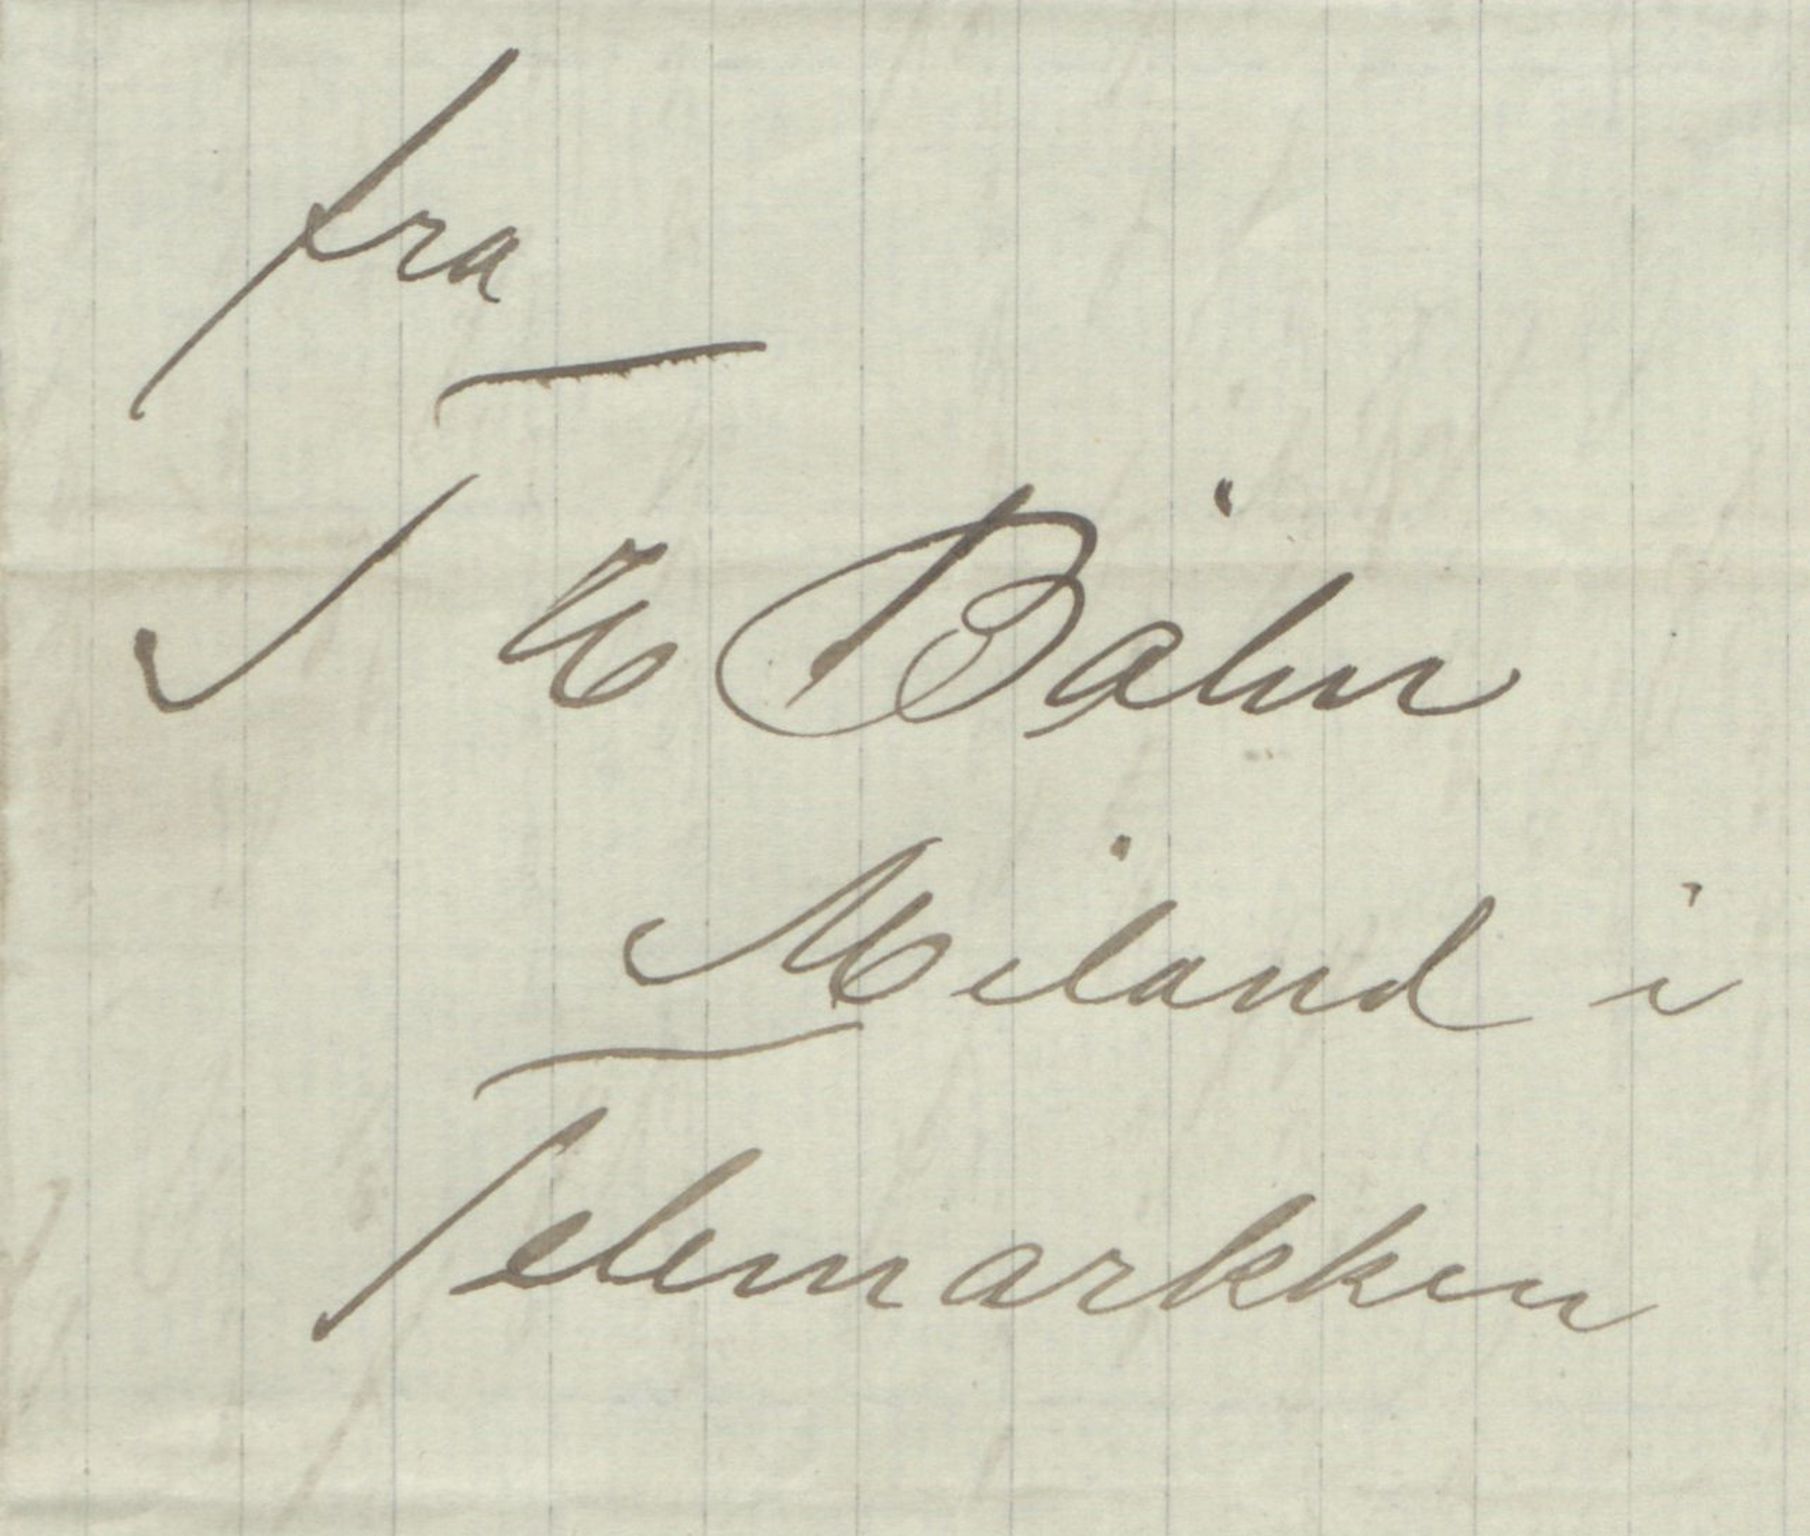 fra
T E Båhn
Miland i
Telemarkken